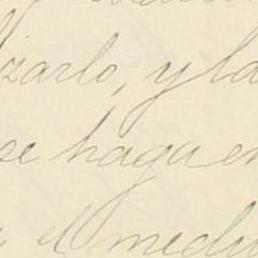 izarlo, y la
se haga en
el medio